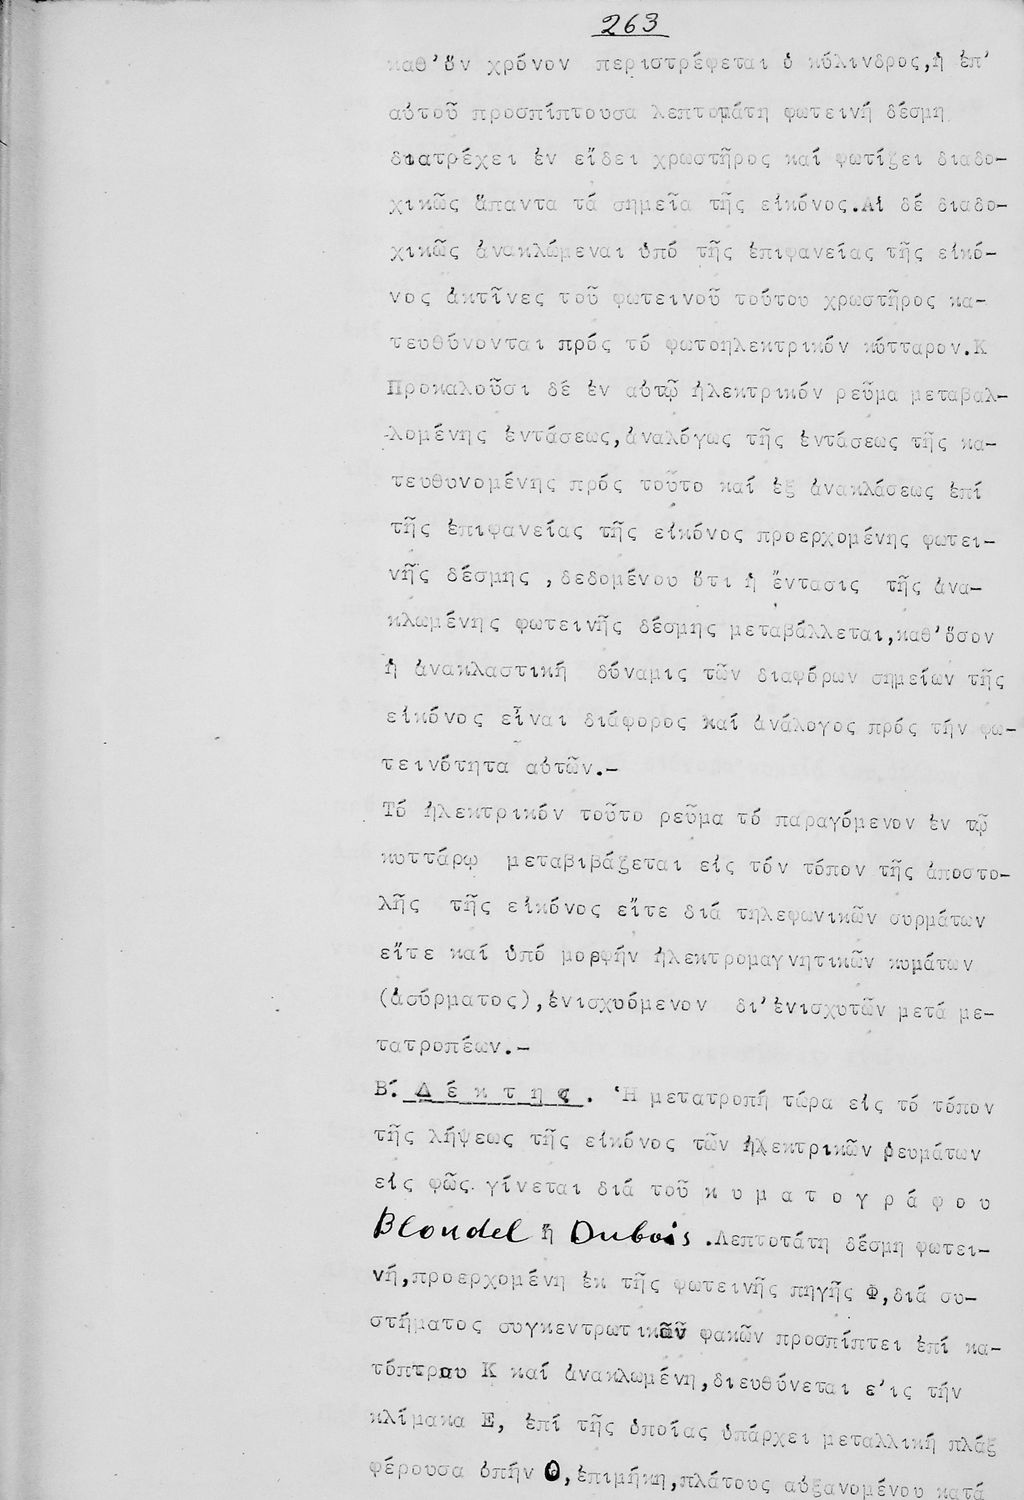 263
καθ' ὅν χρόνον περιστρέφεται ὁ κύλινδρος, ἡ ἐπ'
αὐτοῦ προσπίπτουσα λεπτομάτη φωτεινή δέσμη
διατρέχει ἐν εἴδει χρωστῆρος καί φωτίζει διαδο-
χικῶς ἅπαντα τά σημεῖα τῆς εἰκόνος. Αἱ δέ διαδο-
χικῶς ἀνακλώμεναι ὑπό τῆς ἐπιφανείας τῆς εἰκό-
νος ἀκτῖνες τοῦ φωτεινοῦ τούτου χρωστῆρος κα-
τευθύνονται πρός τό φωτοηλεκτρικόν κύτταρον. Κ
Προκαλοῦσι δέ ἐν αὐτῷ ἠλεκτρικόν ρεῦμα μεταβαλ-
λομένης ἐντάσεως, ἀναλόγως τῆς ἐντάσεως τῆς κα-
τευθυνομένης πρός τοῦτο καί ἐξ ἀνακλάσεως ἐπί
τῆς ἐπιφανείας τῆς εἰκόνος προερχομένης φωτει-
νῆς δέσμης , δεδομένου ὅτι ἡ ἔντασις τῆς ἀνα-
κλωμένης φωτεινῆς δέσμης μεταβάλλεται, καθ' ὅσον
ἡ ἀνακλαστική δύναμις τῶν διαφόρων σημείων τῆς
εἰκόνος εἶναι διάφορος καί ἀνάλογος πρός τήν φω-
τεινότητα αὐτῶν.-
Τό ἠλεκτρικόν τοῦτο ρεῦμα τό παραγόμενον ἐν τῷ
κυττάρῳ μεταβιβάζεται εἰς τόν τόπον τῆς ἀποστο-
λῆς τῆς εἰκόνος εἴτε διά τηλεφωνικῶν συρμάτων
εἴτε καί ὑπό μορφήν ἠλεκτρομαγνητικῶν κυμάτων
(ἀσύρματος), ἐνισχυόμενον δι' ἐνισχυτῶν μετά με-
τατροπέων.-
Β΄. Δ έ κ τ η ς . Ἡ μετατροπή τώρα εἰς τό τόπον
τῆς λήψεως τῆς εἰκόνος τῶν ἠλεκτρικῶν ρευμάτων
εἰς φῶς γίνεται διά τοῦ κ υ μ α τ ο γ ρ ά φ ο υ
Blondel ἤ Dubois . Λεπτοτάτη δέσμη φωτει-
νή, προερχομένη ἐκ τῆς φωτεινῆς πηγῆς Φ, διά συ-
στήματος συγκεντρωτικῶν φακῶν προσπίπτει ἐπί κα-
τόπτρου Κ καί ἀνακλωμένη, διευθύνεται ε'ις τήν
κλίμακα Ε, ἐπί τῆς ὁποίας ὑπάρχει μεταλλική πλάξ
φέρουσα ὀπήν Ο, ἐπιμήκη, πλάτους αὐξανομένου κατά